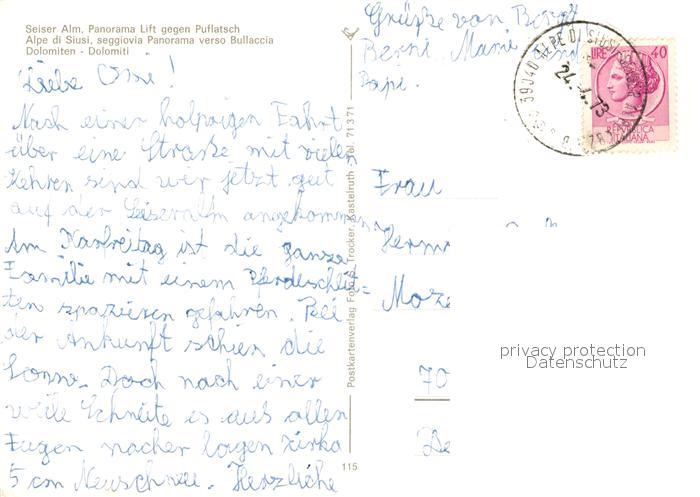 Seiser Alm, Panorama Lift gegen Puflatsch
Alpe di Siusi, seggiovia Panorama verso Bullaccia
Dolomiten - Dolomiti
Liebe Omi!
Nach einer holprigen Fahrt
über eine Straße mit vielen
Kehren sind wir jetzt gut
auf der Seiseralm angekommen
Am Karfreitag ist die ganze
Familie mit einem Pferdeschlit=
ten spazieren gefahren. Bei
der Ankunft schien die
Sonne. Doch nach einer
weile Schneite es aus allen
Fugen nacher lagen zirka
5 cm Neuschnee. Herzliche
Grüße von
Berni, Mami und
Papi.
Postkartenverlag Foto Trocker, Kastelruth
71371
115
39040 ALPE DI SIUSI
73
LIRE 40
REPUBBLICA
ITALIANA
Frau
Herm
Moze
70
privacy protection
Datenschutz